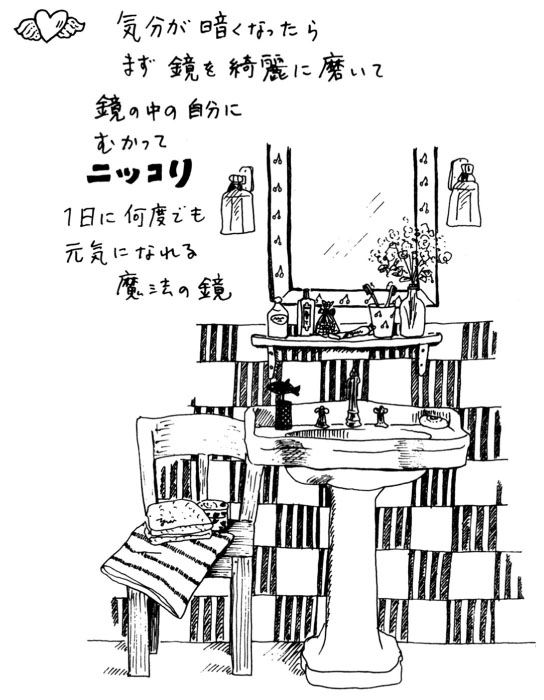 気分が暗くなったら
まず鏡を綺麗に磨いて
鏡の中の自分に
むかって
ニッコリ
1日に何度でも
元気になれる
魔法の鏡